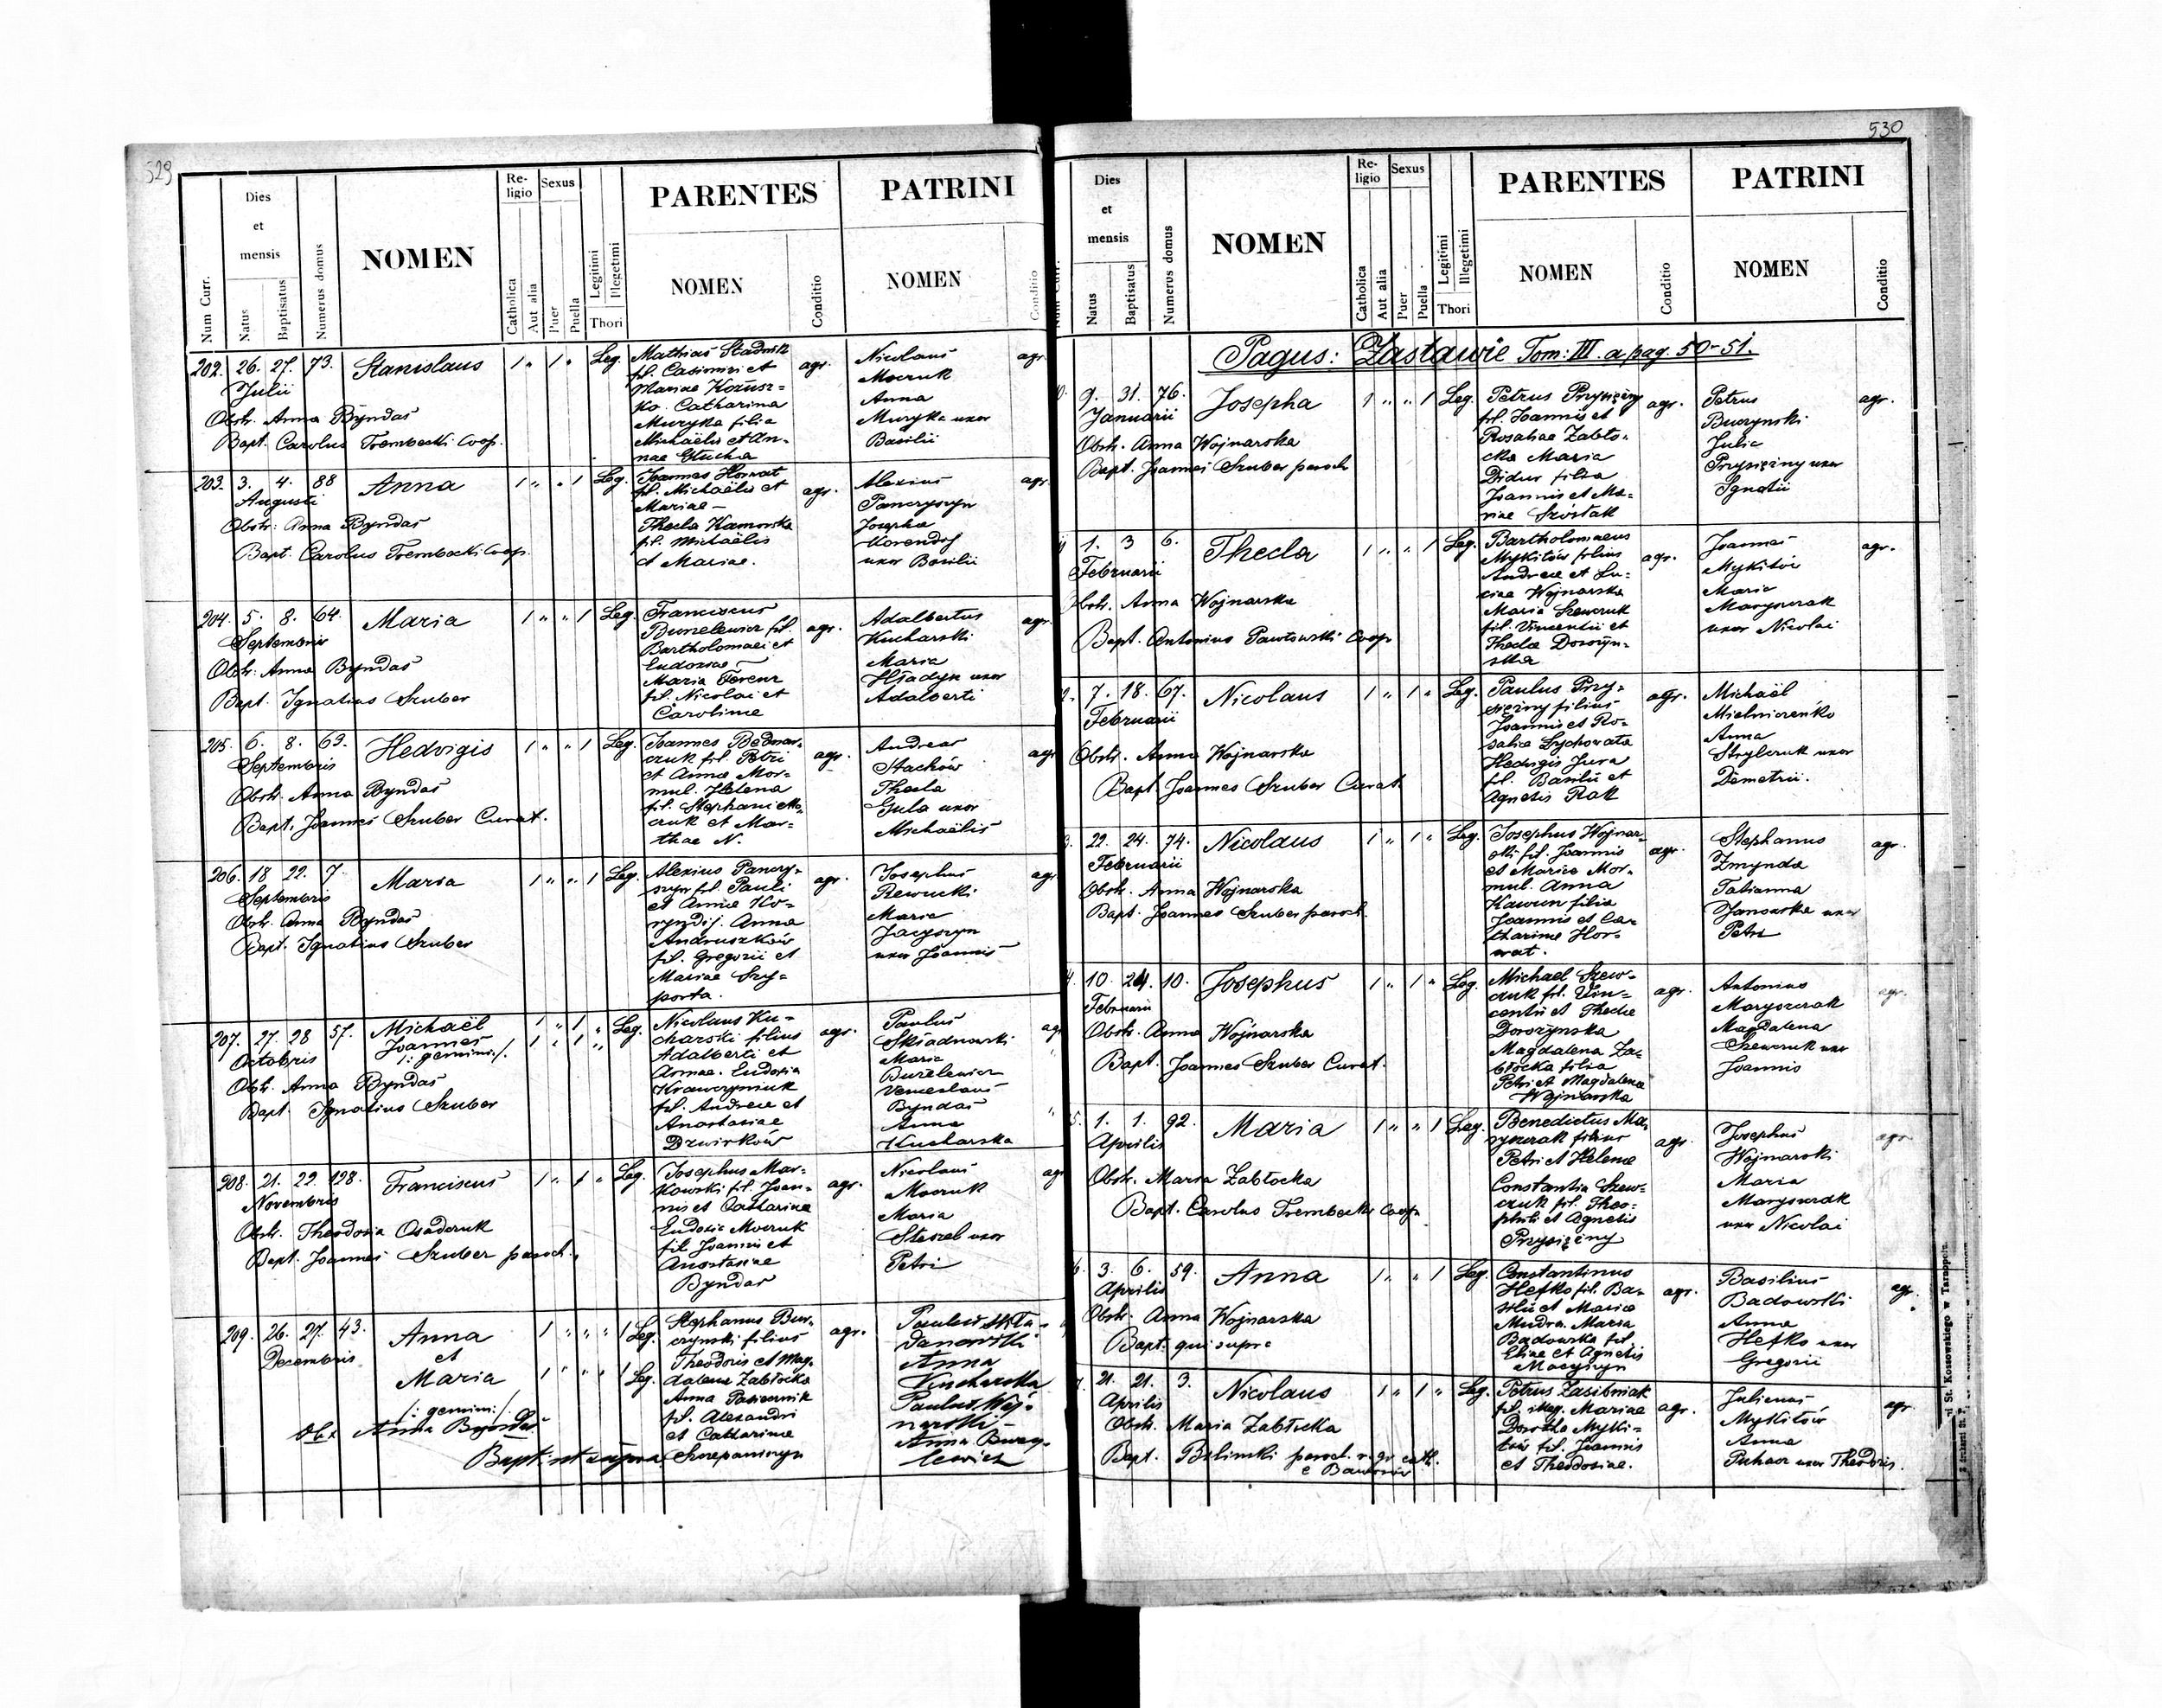 529
Num Curr.
Dies et mensis
Natus
Baptisatus
Numerus domus
NOMEN
Religio
Catholica
Aut alia
Sexus
Puer
Puella
Legitimi
Illegetimi
Thori
PARENTES
NOMEN
Conditio
PATRINI
NOMEN
Conditio
202. 26. 27. 73. Stanislaus 1 " 1 " Leg.
Julii
Obstr. Anna Byndas
Bapt. Carolus Trembecki Coop.
Mathias Stadnik
fil. Casimiri et
Mariae Korusz-
ko. Catharina
Muzyka filia
Michaëlis et An-
nae Głucha
agr.
Nicolaus
Moczuk
Anna
Muzyka uxor
Basilii
agr.
203. 3. 4. 88 Anna 1 " " 1 Leg.
Augusti
Obstr: Anna Byndas
Bapt. Carolus Trembecki Coop.
Joannes Horwat
fil. Michaëlis et
Mariae –
Thecla Kamorska
fil. Michaëlis
et Mariae.
agr.
Alexius
Panczyszyn
Josepha
Korendij
uxor Basilii
agr.
204. 5. 8. 64. Maria 1 " " 1 Leg.
Septembris
Obstr: Anna Byndas
Bapt. Ignatius Szuber
Franciscus
Burzelewicz fil.
Bartholomaei et
Eudoxiae –
Maria Ferenz
fil. Nicolai et
Carolinae
agr.
Adalbertus
Kucharski
Maria
Hładyn uxor
Adalberti
agr.
205. 6. 8. 63. Hedvigis 1 " " 1 Leg.
Septembris
Obstr. Anna Byndas
Bapt. Joannes Szuber Curat.
Joannes Bednar-
czuk fil. Petri
et Annae Mor-
mul. Helena
fil. Stephani Mo-
czuk et Mar-
thae N.
agr.
Andreas
Stachów
Thecla
Gula uxor
Michaëlis
agr
206. 18 22. 7. Maria 1 " " 1 Leg.
Septembris
Obstr. Anna Byndas
Bapt. Ignatius Szuber
Alexius Panczy-
szyn fil. Pauli
et Annae Ko-
ryndij. Anna
Andruszków
fil. Gregorii et
Mariae Szy-
porta.
agr.
Josephus
Rewucki
Maria
Jacyszyn
uxor Joannis
agr
207. 27. 28 57. Michaël 1 " 1 " Leg.
Octobris Joannes 1 " 1 "
/: gemini :/.
Obstr. Anna Byndas
Bapt. Ignatius Szuber
Nicolaus Ku-
charski filius
Adalberti et
Annae. Eudoxia
Krawczyniuk
fil. Andreae et
Anastasiae
Dzwirków
agr.
Paulus
Składnowski
Maria
Burzelewicz
Venceslaus
Byndas
Anna
Kucharska
agr
208. 21. 22. 198. Franciscus 1 " 1 " Leg.
Novembris
Obstr. Theodosia Osadczuk
Bapt. Joannes Szuber paroch.
Josephus Mar-
kowski fil. Joan-
nis et Catharinae
Eudoxia Moczuk
fil Joannis et
Anastasiae
Byndas
agr.
Nicolaus
Moczuk
Maria
Staszel uxor
Petri
agr
209. 26. 27. 43. Anna 1 " " 1 Leg.
Decembris et
Maria 1 " " 1 Leg.
/: gemini :/.
Obs. Anna Byndas
Bapt. ut supra
Stephanus Bur-
czynski filius
Theodoris et Mag-
dalenae Zabłocka
Anna Pasiecznik
fil. Alexandri
et Catharinae
Szczepaniszyn
agr.
Paulus Skła-
danowski
Anna
Kucharska
Paulus Woj-
narski –
Anna Burze-
lewicz
530
Num Curr.
Dies et mensis
Natus
Baptisatus
Numerus domus
NOMEN
Religio
Catholica
Aut alia
Sexus
Puer
Puella
Legitimi
Illegetimi
Thori
PARENTES
NOMEN
Conditio
PATRINI
NOMEN
Conditio
Pagus: Zastawie Tom: III. a pag. 50-51.
9. 31. 76. Josepha 1 " " 1 Leg.
Januarii
Obstr. Anna Wojnarska
Bapt. Joannes Szuber paroch
Petrus Przysiężny
fil. Joannis et
Rosaliae Zabło-
cka Maria
Didur filia
Joannis et Ma-
riae Szóstak
agr.
Petrus
Buczynski
Julia
Przysiężny uxor
Ignatii
agr.
1. 3 6. Thecla 1 " " 1 Leg.
Februarii
Obstr. Anna Wojnarska
Bapt. Antonius Pawłowski Coop
Bartholomaeus
Mykitów filius
Andreae et Lu-
ciae Wojnarska
Maria Szewczuk
fil. Vincentii et
Theclae Dorożyn-
ska
agr.
Joannes
Mykitów
Maria
Maryszczak
uxor Nicolai
agr.
7. 18. 67. Nicolaus 1 " 1 " Leg.
Februarii
Obstr. Anna Wojnarska
Bapt. Joannes Szuber Curat.
Paulus Przy-
siężny filius
Joannis et Ro-
salia Lychowata
Hedvigis Jura
fil. Basilii et
Agnetis Rak
agr.
Michaël
Mielniczenko
Anna
Strylczuk uxor
Demetrii.
22. 24. 74. Nicolaus 1 " 1 " Leg.
Februarii
Obstr. Anna Wojnarska
Bapt. Joannes Szuber paroch.
Josephus Wojnar-
ski fil. Joannis
et Mariae Mor-
mul. Anna
Kawun filia
Joannis et Ca-
tharinae Hor-
wat.
agr.
Stephanus
Zmynda
Tatianna
Janowska uxor
Petri
agr.
10 24. 10. Josephus 1 " 1 " Leg.
Februarii
Obstr. Anna Wojnarska
Bapt. Joannes Szuber Curat.
Michael Szew-
czuk fil. Vin-
centii et Theclae
Dorozynska
Magdalena Za-
błocka filia
Petri et Magdalena
Wojnarska
agr.
Antonius
Maryszczak
Magdalena
Szewczuk uxor
Joannis
agr.
1. 1. 92. Maria 1 " " 1 Leg.
Aprilis
Obstr. Maria Zabłocka
Bapt. Carolus Trembecki Coop
Benedictus Ma-
ryszczak filius
Petri et Helenae
Constantia Szew-
czuk fil. Theo-
phili et Agnetis
Przysiężny
agr.
Josephus
Wojnarski
Maria
Maryszczak
uxor Nicolai
agr.
3. 6. 59. Anna 1 " " 1 Leg.
Aprilis
Obstr. Anna Wojnarska
Bapt. qui supra
Constantinus
Hefko fil. Ba-
silii et Mariae
Mudra. Maria
Badowska fil.
Eliae et Agnetis
Macyszyn
agr.
Basilius
Badowski
Anna
Hefko uxor
Gregorii
agr.
21. 21. 3. Nicolaus 1 " 1 " Leg.
Aprilis
Obstr. Maria Zabłocka
Bapt. Biliński paroch. r. gr. cath.
e Baworów
Petrus Zasibniak
fil. illeg. Mariae
Dorothea Myki-
tów fil. Joannis
et Theodosiae.
agr.
Julianus
Mykitów
Anna
Puhacz uxor Theodoris.
agr.
St. Kossowskiego w Tarnopolu.